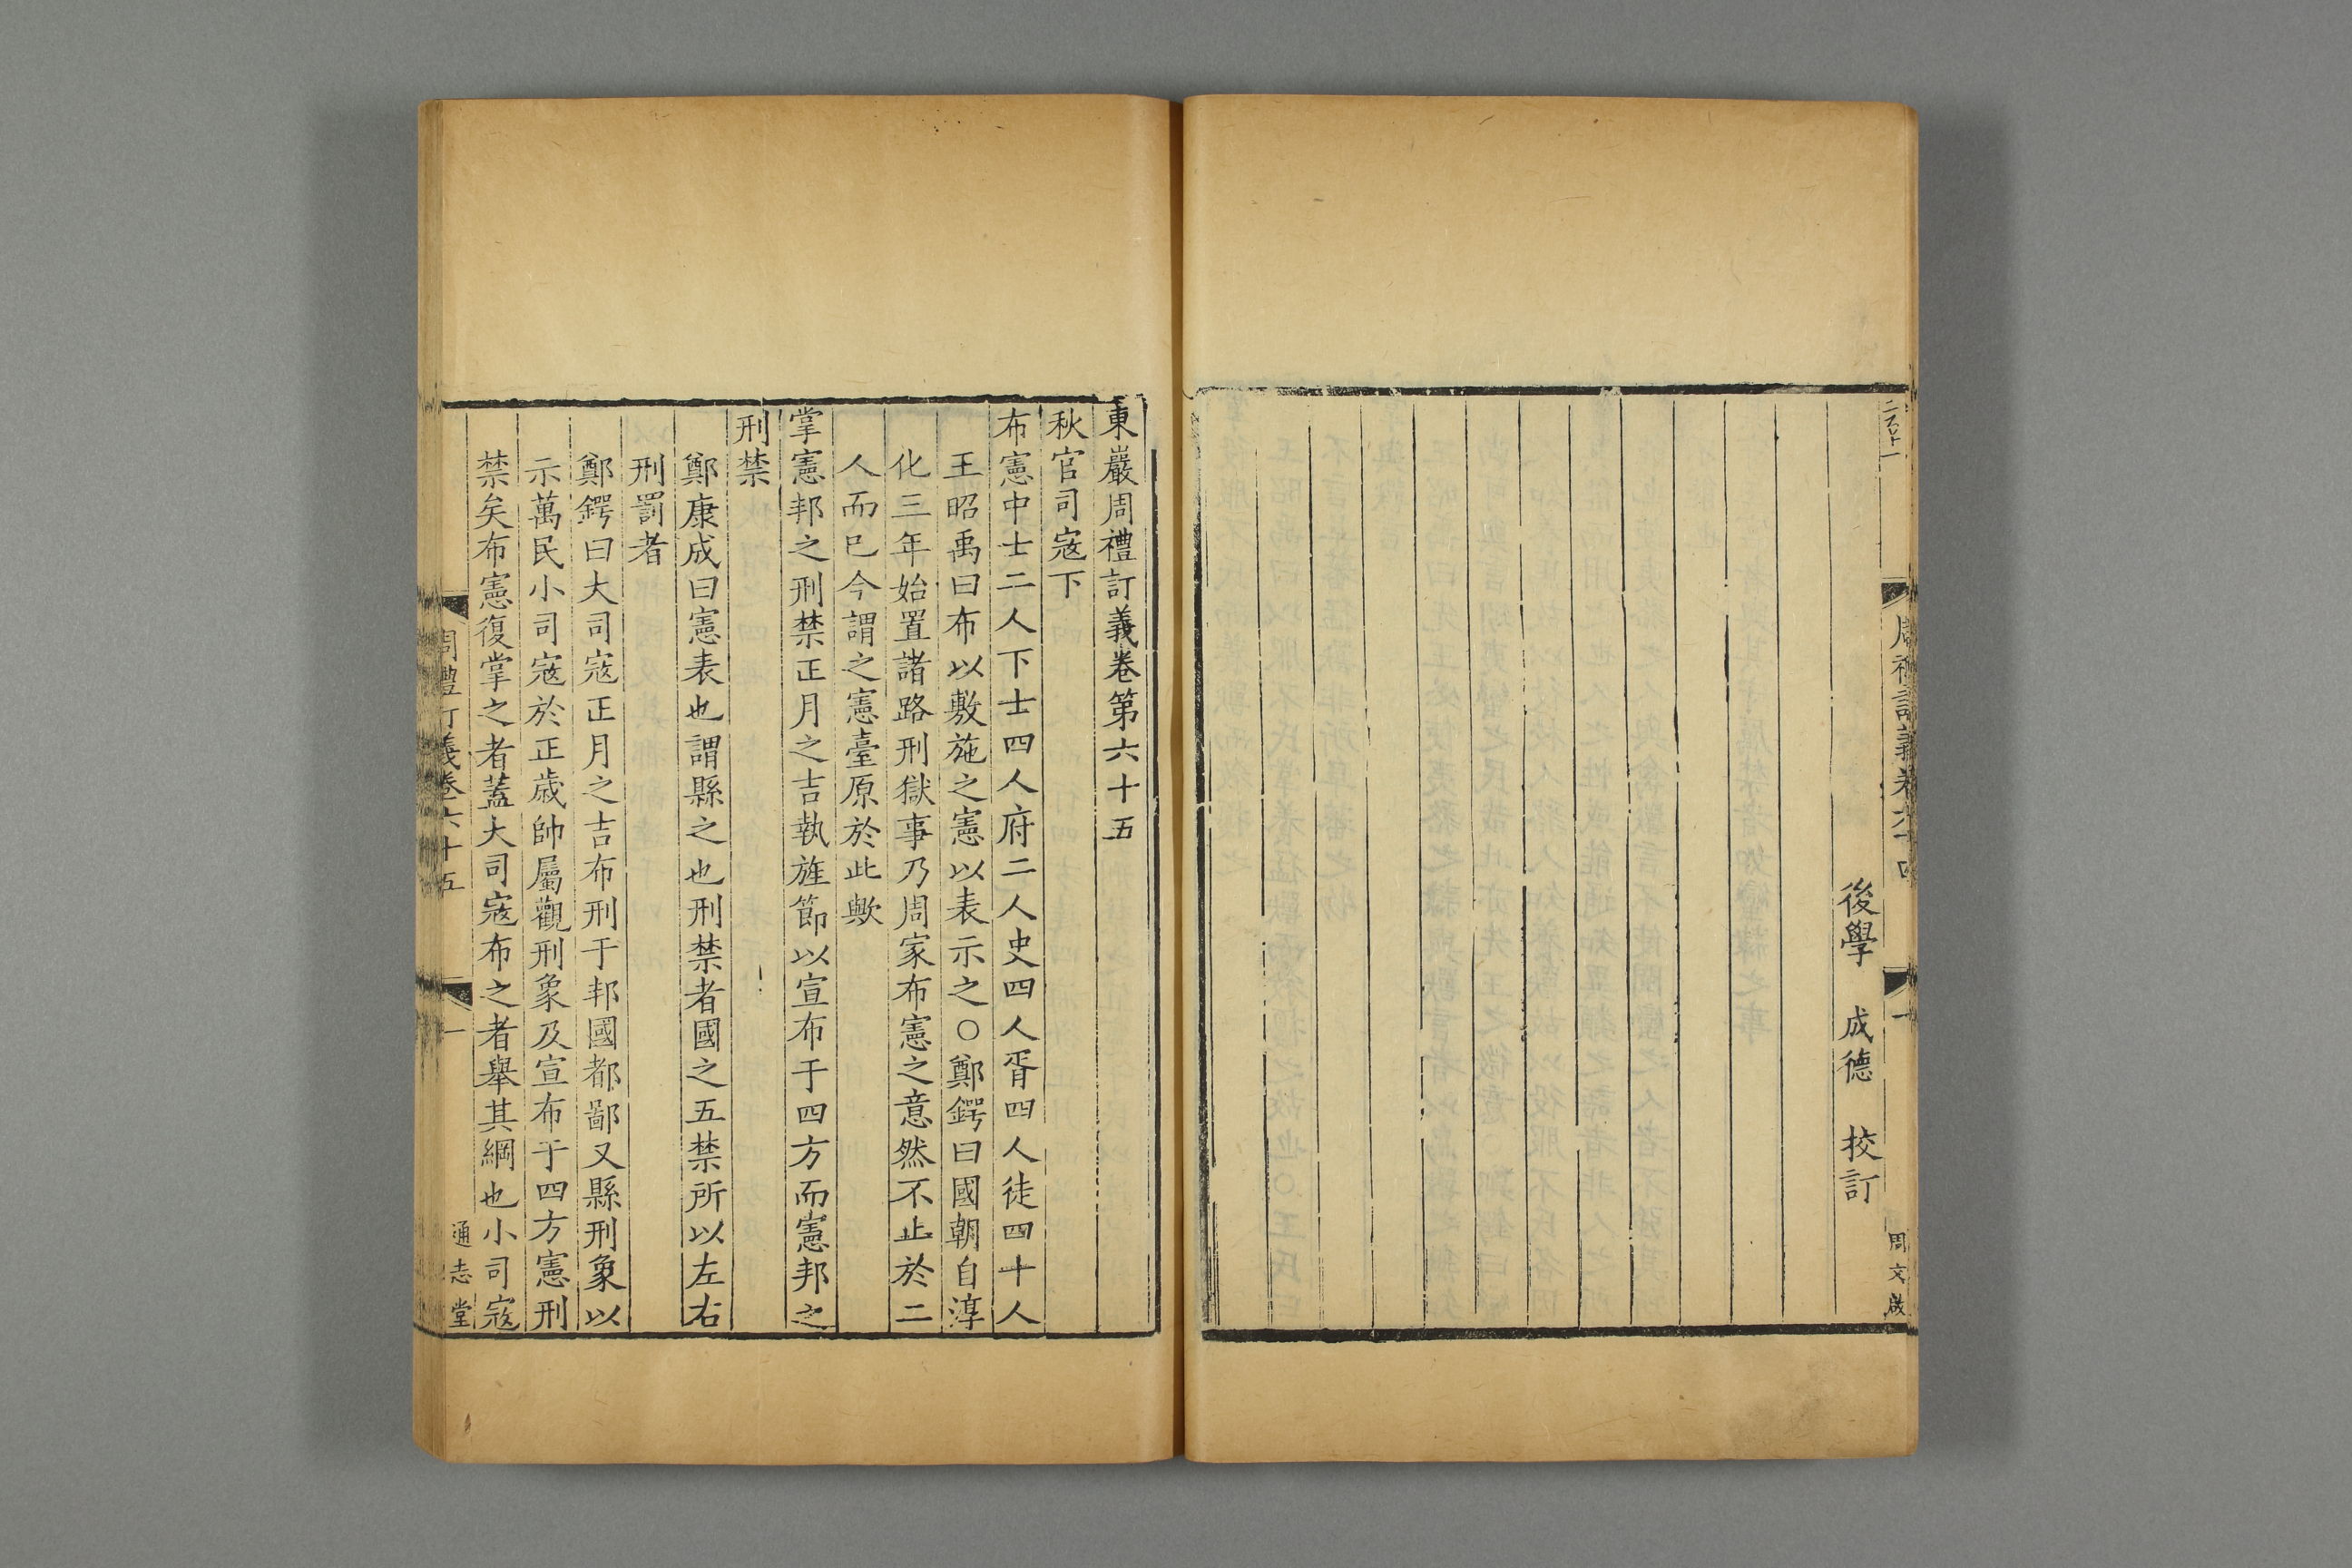 後學 成德 校訂
周文啟
東巖周禮訂義卷第六十五
秋官司寇下
布憲中士二人下士四人府二人史四人胥四人徒四十人
王昭禹曰布以敷施之憲以表示之○鄭鍔曰國朝自淳
化三年始置諸路刑獄事乃周家布憲之意然不止於二
人而已今謂之憲臺原於此歟
掌憲邦之刑禁正月之吉執旌節以宣布于四方而憲邦之
刑禁
鄭康成曰憲表也謂縣之也刑禁者國之五禁所以左右
刑罰者
鄭鍔曰大司寇正月之吉布刑于邦國都鄙又縣刑象以
示萬民小司寇於正歲帥屬觀刑象及宣布于四方憲刑
禁矣布憲復掌之者蓋大司寇布之者舉其綱也小司寇
周禮訂義卷六十五
一
通志堂